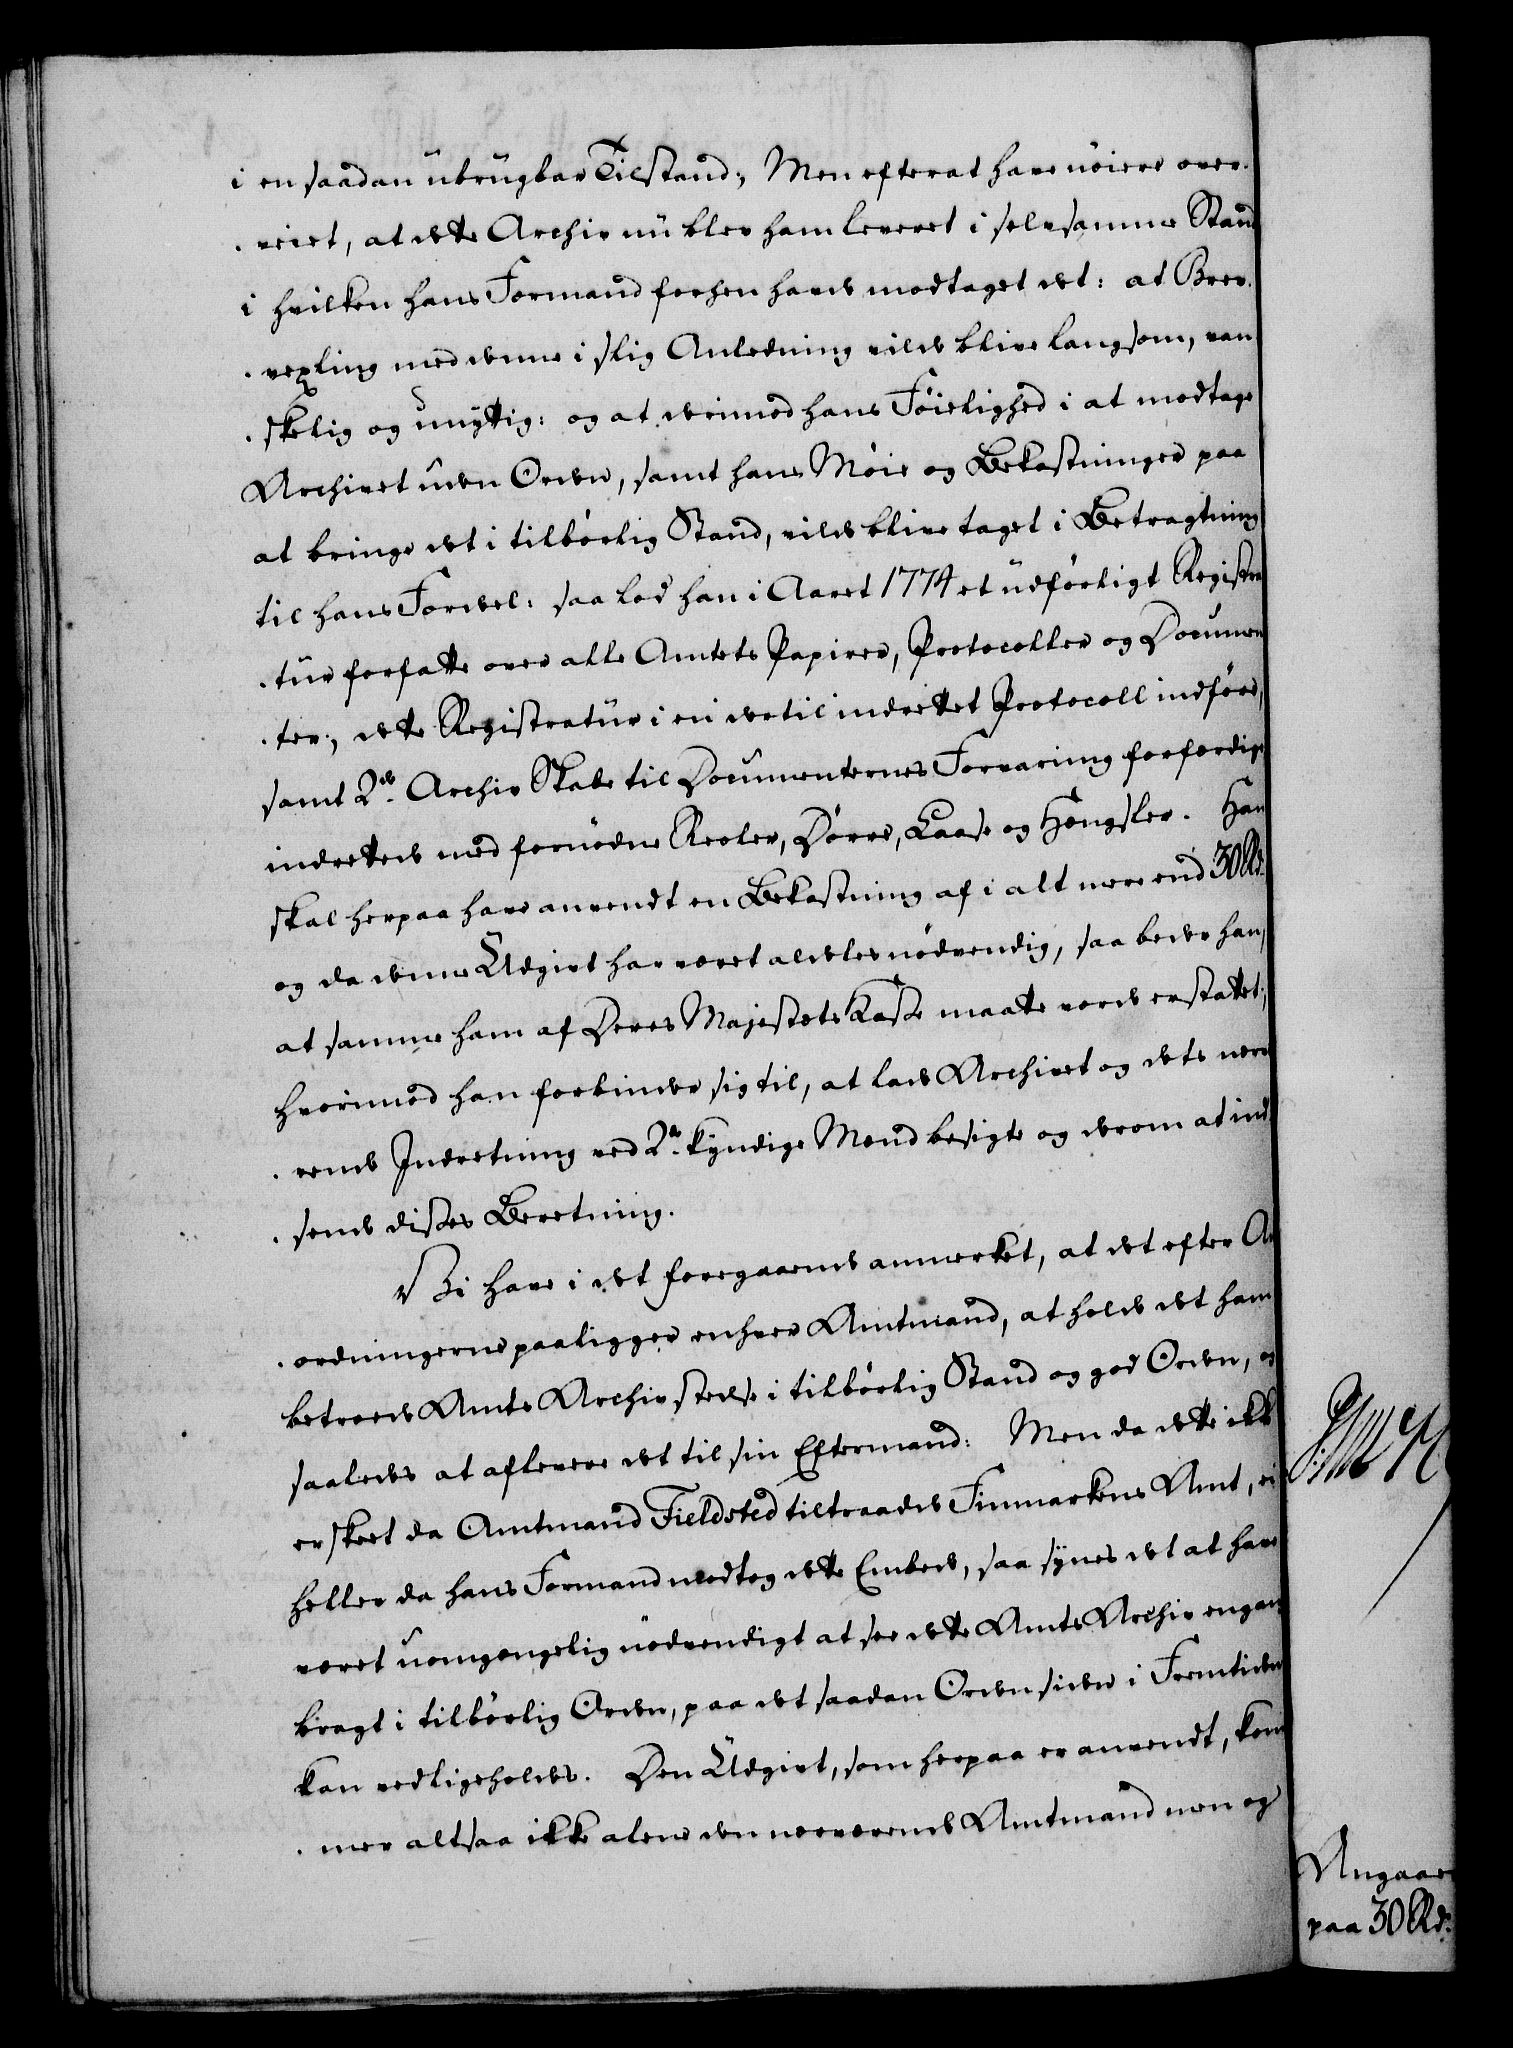 i en saadan ubrugbar Tilstand; Men efterat have nöiere over-
veiet, at dette Archiv nu blev ham leveret i selvsamme Stand
i hvilken hans Formand forhen havde modtaget det: at Brev-
vexling med denne i slig Anledning vilde blive langsom, van
skelig og unyttig: og at derimod hans Föielighed i at modtage
Archivet uden Orden, samt hans Möie og Bekostninger paa
at bringe det i tilbörlig Stand, vilde blive taget i Betragtning
til hans Fordel: saa lod han i Aaret 1774 et udförligt Registra
tur forfatte over alle Amtets Papirer, Protocoller og Documen
ter, dette Registratur i en dertil indrettet Protocoll indföre,
samt 2de Archiv Skabe til Documenternes Forvaring forfærdige
indrettede med fornödne Reoler, Dörre, Laase og Hængsler. Han
skal herpaa have anvendt en Bekostning af i alt mere end 30 Rd.
og da denne Udgivt har været aldeles nödvendig, saa beder han,
at samme ham af Deres Majestæts Kasse maatte vorde erstattet;
hvorimod han forbinder sig til, at lade Archivet og dets nær
ende Indretning ved 2de kyndige Mænd besigte og derom at ind
sende disses Beretning.
Vi have i det foregaaende anmærket, at det efter An
ordningerne paaligger enhver Amtmand, at holde det ham
betroede Amts Archiv stedse i tilbörlig Stand og god Orden, og
saaledes at aflevere det til sin Eftermand: Men da dette ikke
er skeet da Amtmand Fieldsted tiltraadde Finmarkens Amt, ei
heller da hans Formand modtog dette Embede, saa synes det at have
været uomgængelig nödvendigt at see dette Amts Archiv engang
bragt i tilbörlig Orden, paa det saadan Orden siden i Fremtiden
kan vedligeholdes. Den Udgivt, som herpaa er anvendt, kom
mer altsaa ikke alene den nærværende Amtmand men og
Angaae
paa 30 Rd.